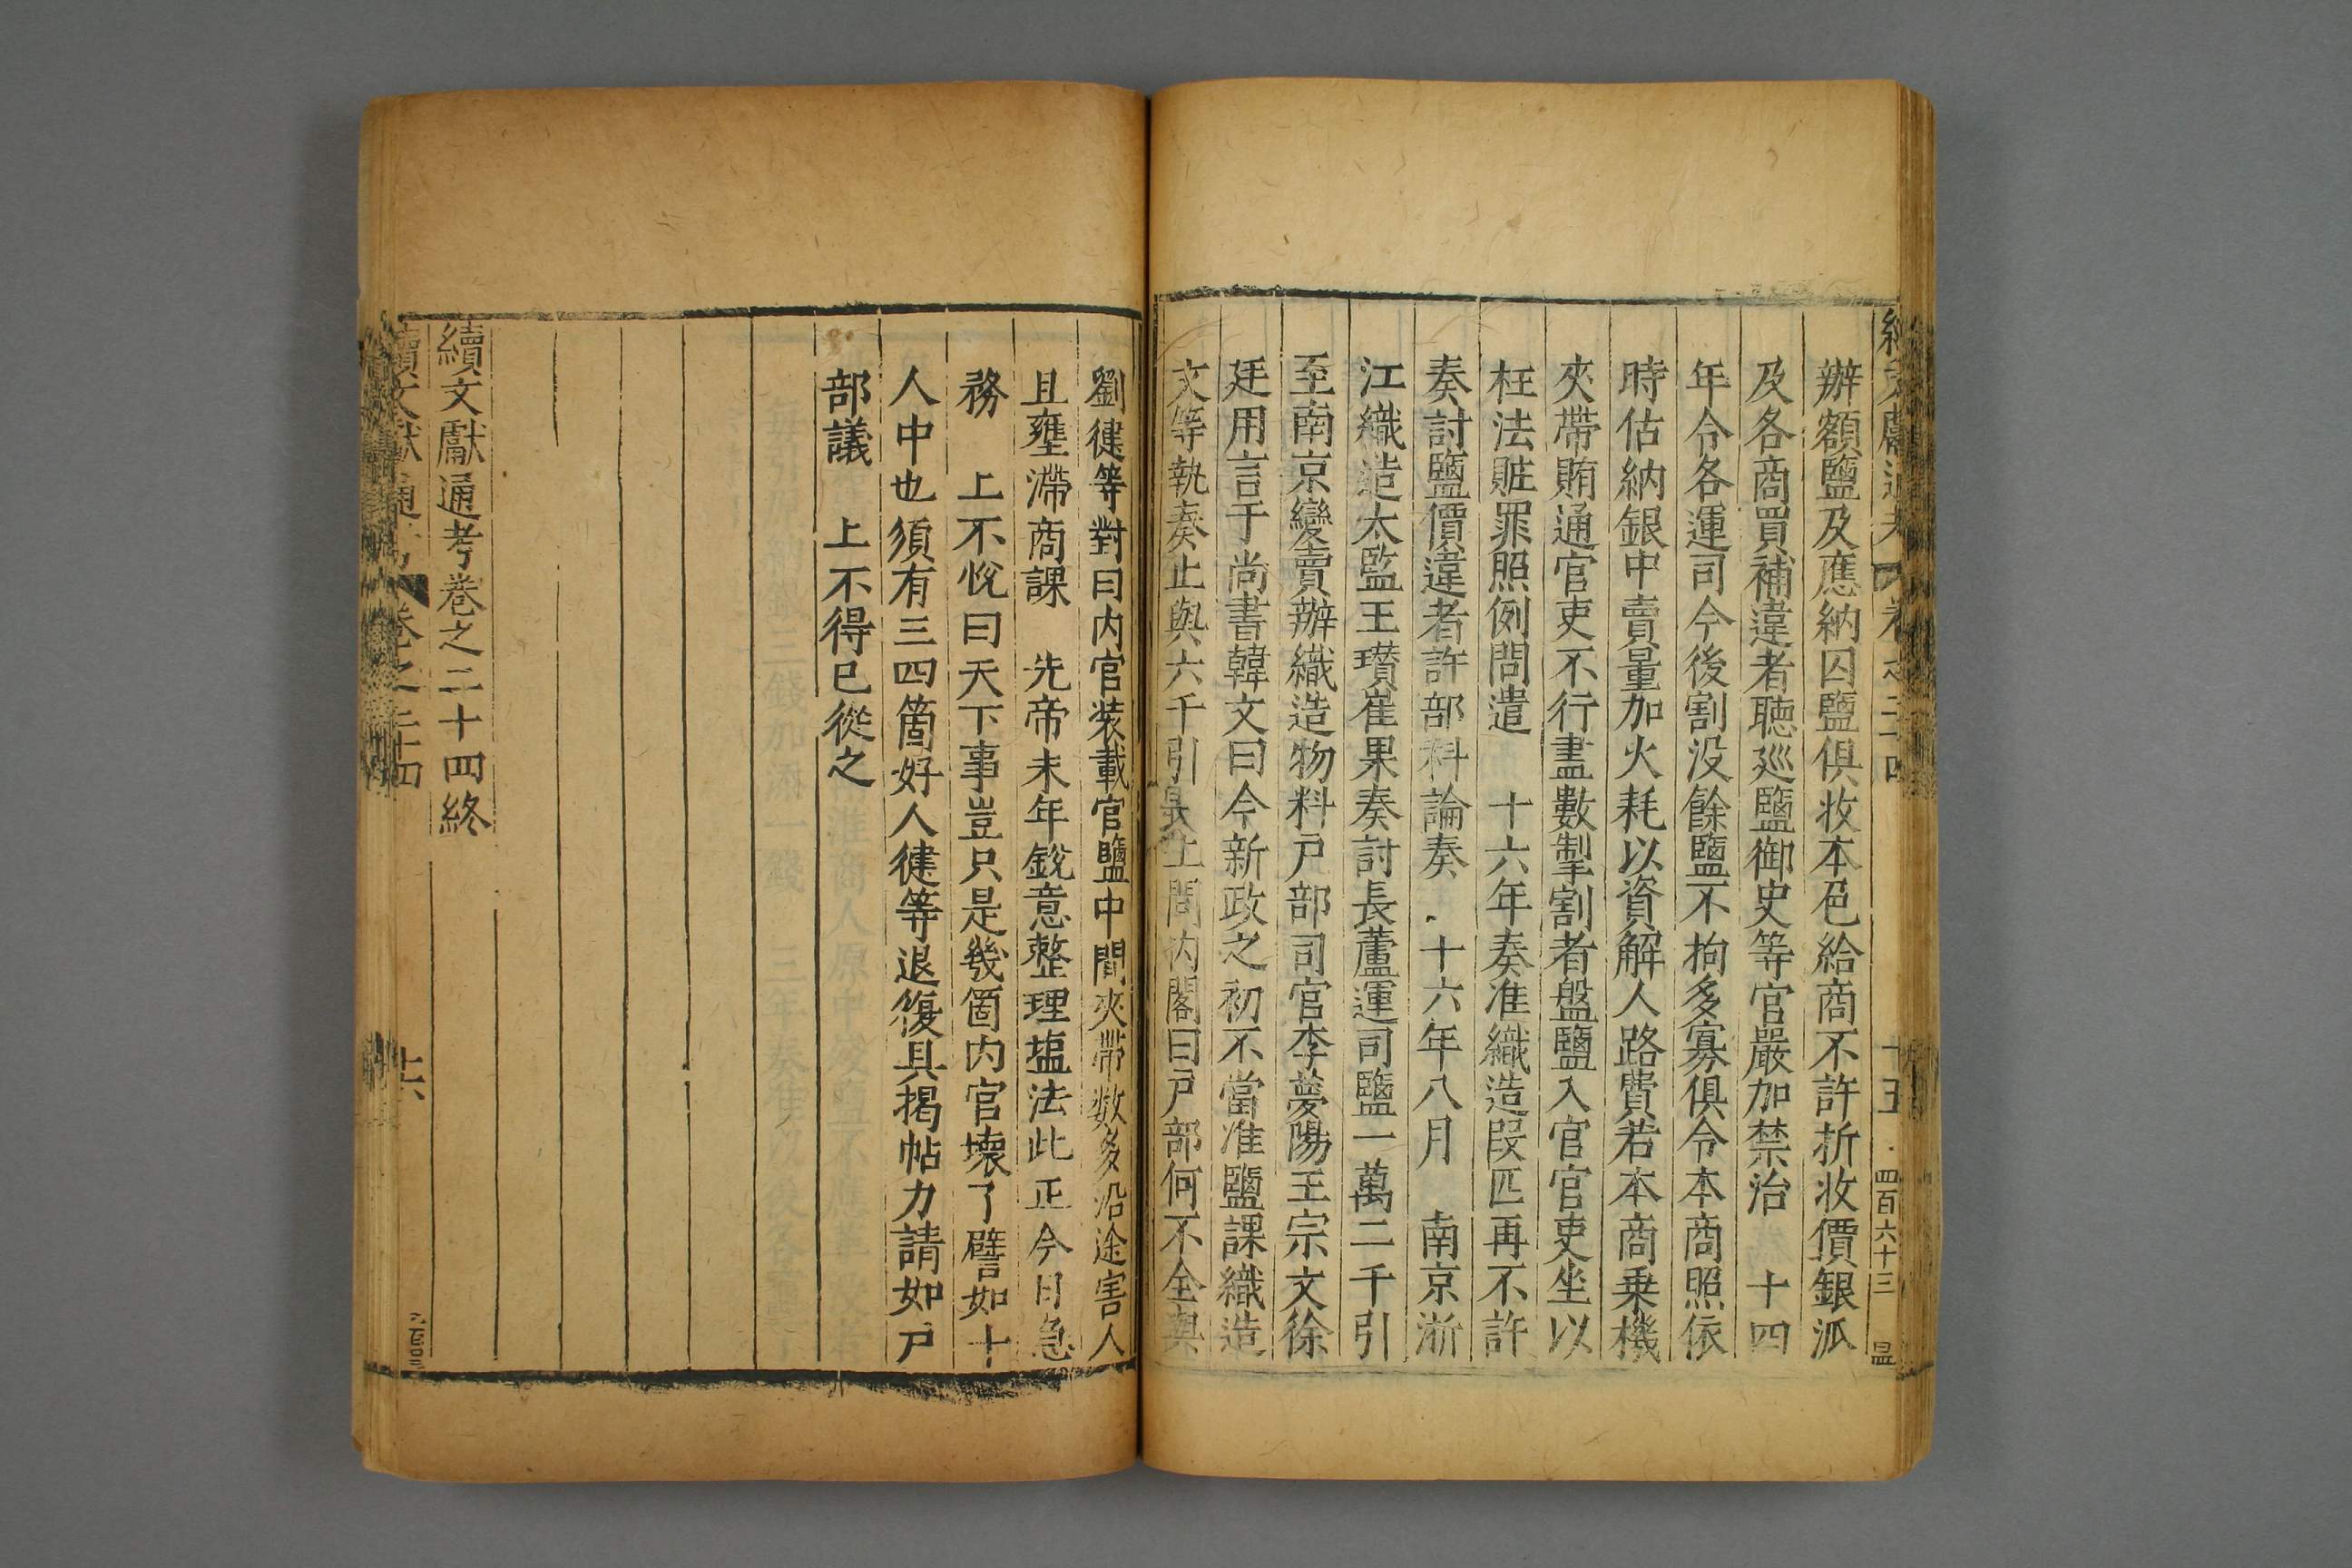 辦額鹽及應納囚鹽俱收本色給商不許折收價銀派
及各商買補違者聽廵鹽御史等官嚴加禁治　十四
年令各運司今後割没餘鹽不拘多寡俱令本商照依
時估納銀中賣量加火耗以資解人路費若本商乗機
夾帶賄通官吏不行盡數掣割者盤鹽入官官吏坐以
枉法賍罪照例問遣　十六年奏准織造叚匹再不許
奏討鹽價違者許部科論奏　十六年八月　南京浙
江織造太監王瓚崔果奏討長蘆運司鹽一萬二千引
至南京變賣辦織造物料户部司官李夢陽王宗文徐
廷用言于尚書韓文曰今新政之初不當准鹽課織造
文等執奏止與六千引上問内閣曰户部何不全與
劉健等對曰内官装載官鹽中間夾帶数多沿途害人
且壅滯商課　先帝末年銳意整理塩法此正今日急
務　上不悅曰天下事豈只是幾箇内官壞了譬如十
人中也須有三四箇好人健等退復具揭帖力請如户
部議　上不得已從之
續文獻通考卷之二十四終